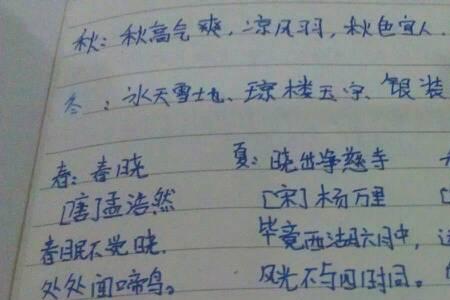 秋：秋高气爽，凉风习习，秋色宜人.
冬：冰天雪地、琼楼玉宇、银装
春：春晓
夏：晓出净慈寺
[唐]孟浩然
[宋]杨万里
春眠不觉晓.
毕竟西湖六月中，
处处闻啼鸟。
风光不与四时同。